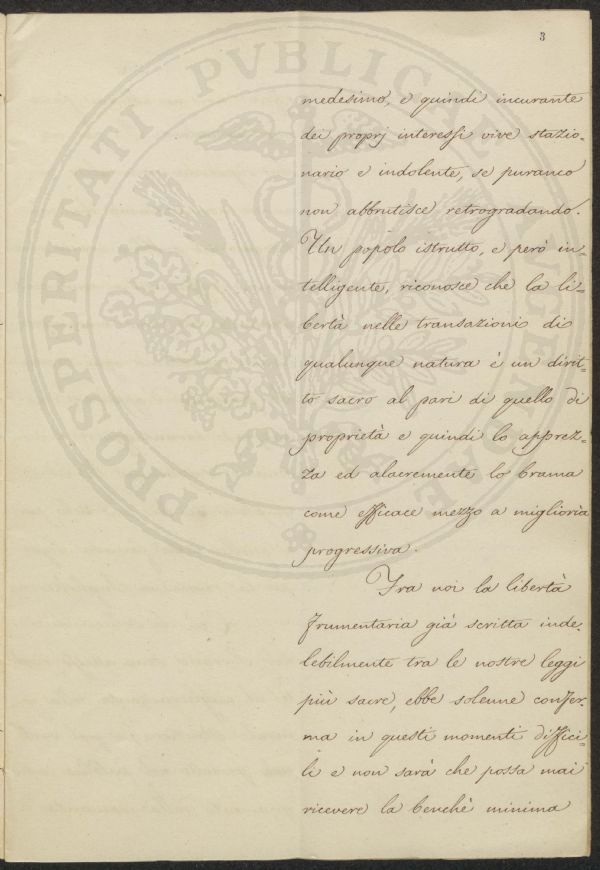 3
PROSPERITATI PVBLICAE AVGENDAE
medesimo, e quindi incurante
dei proprj interessi vive stazio-
nario e indolente, se puranco
non abbrutisce retrogradando.
Un popolo istrutto, e però in-
telligente, riconosce che la li-
bertà nelle transazioni di
qualunque natura è un dirit-
to sacro al pari di quello di
proprietà e quindi lo apprez-
za ed alacremente lo brama
come efficace mezzo a miglioria
progressiva.
Fra noi la libertà
frumentaria già scritta inde-
lebilmente tra le nostre leggi
più sacre, ebbe solenne confer-
ma in questi momenti diffici-
li e non sarà che possa mai
ricevere la benchè minima